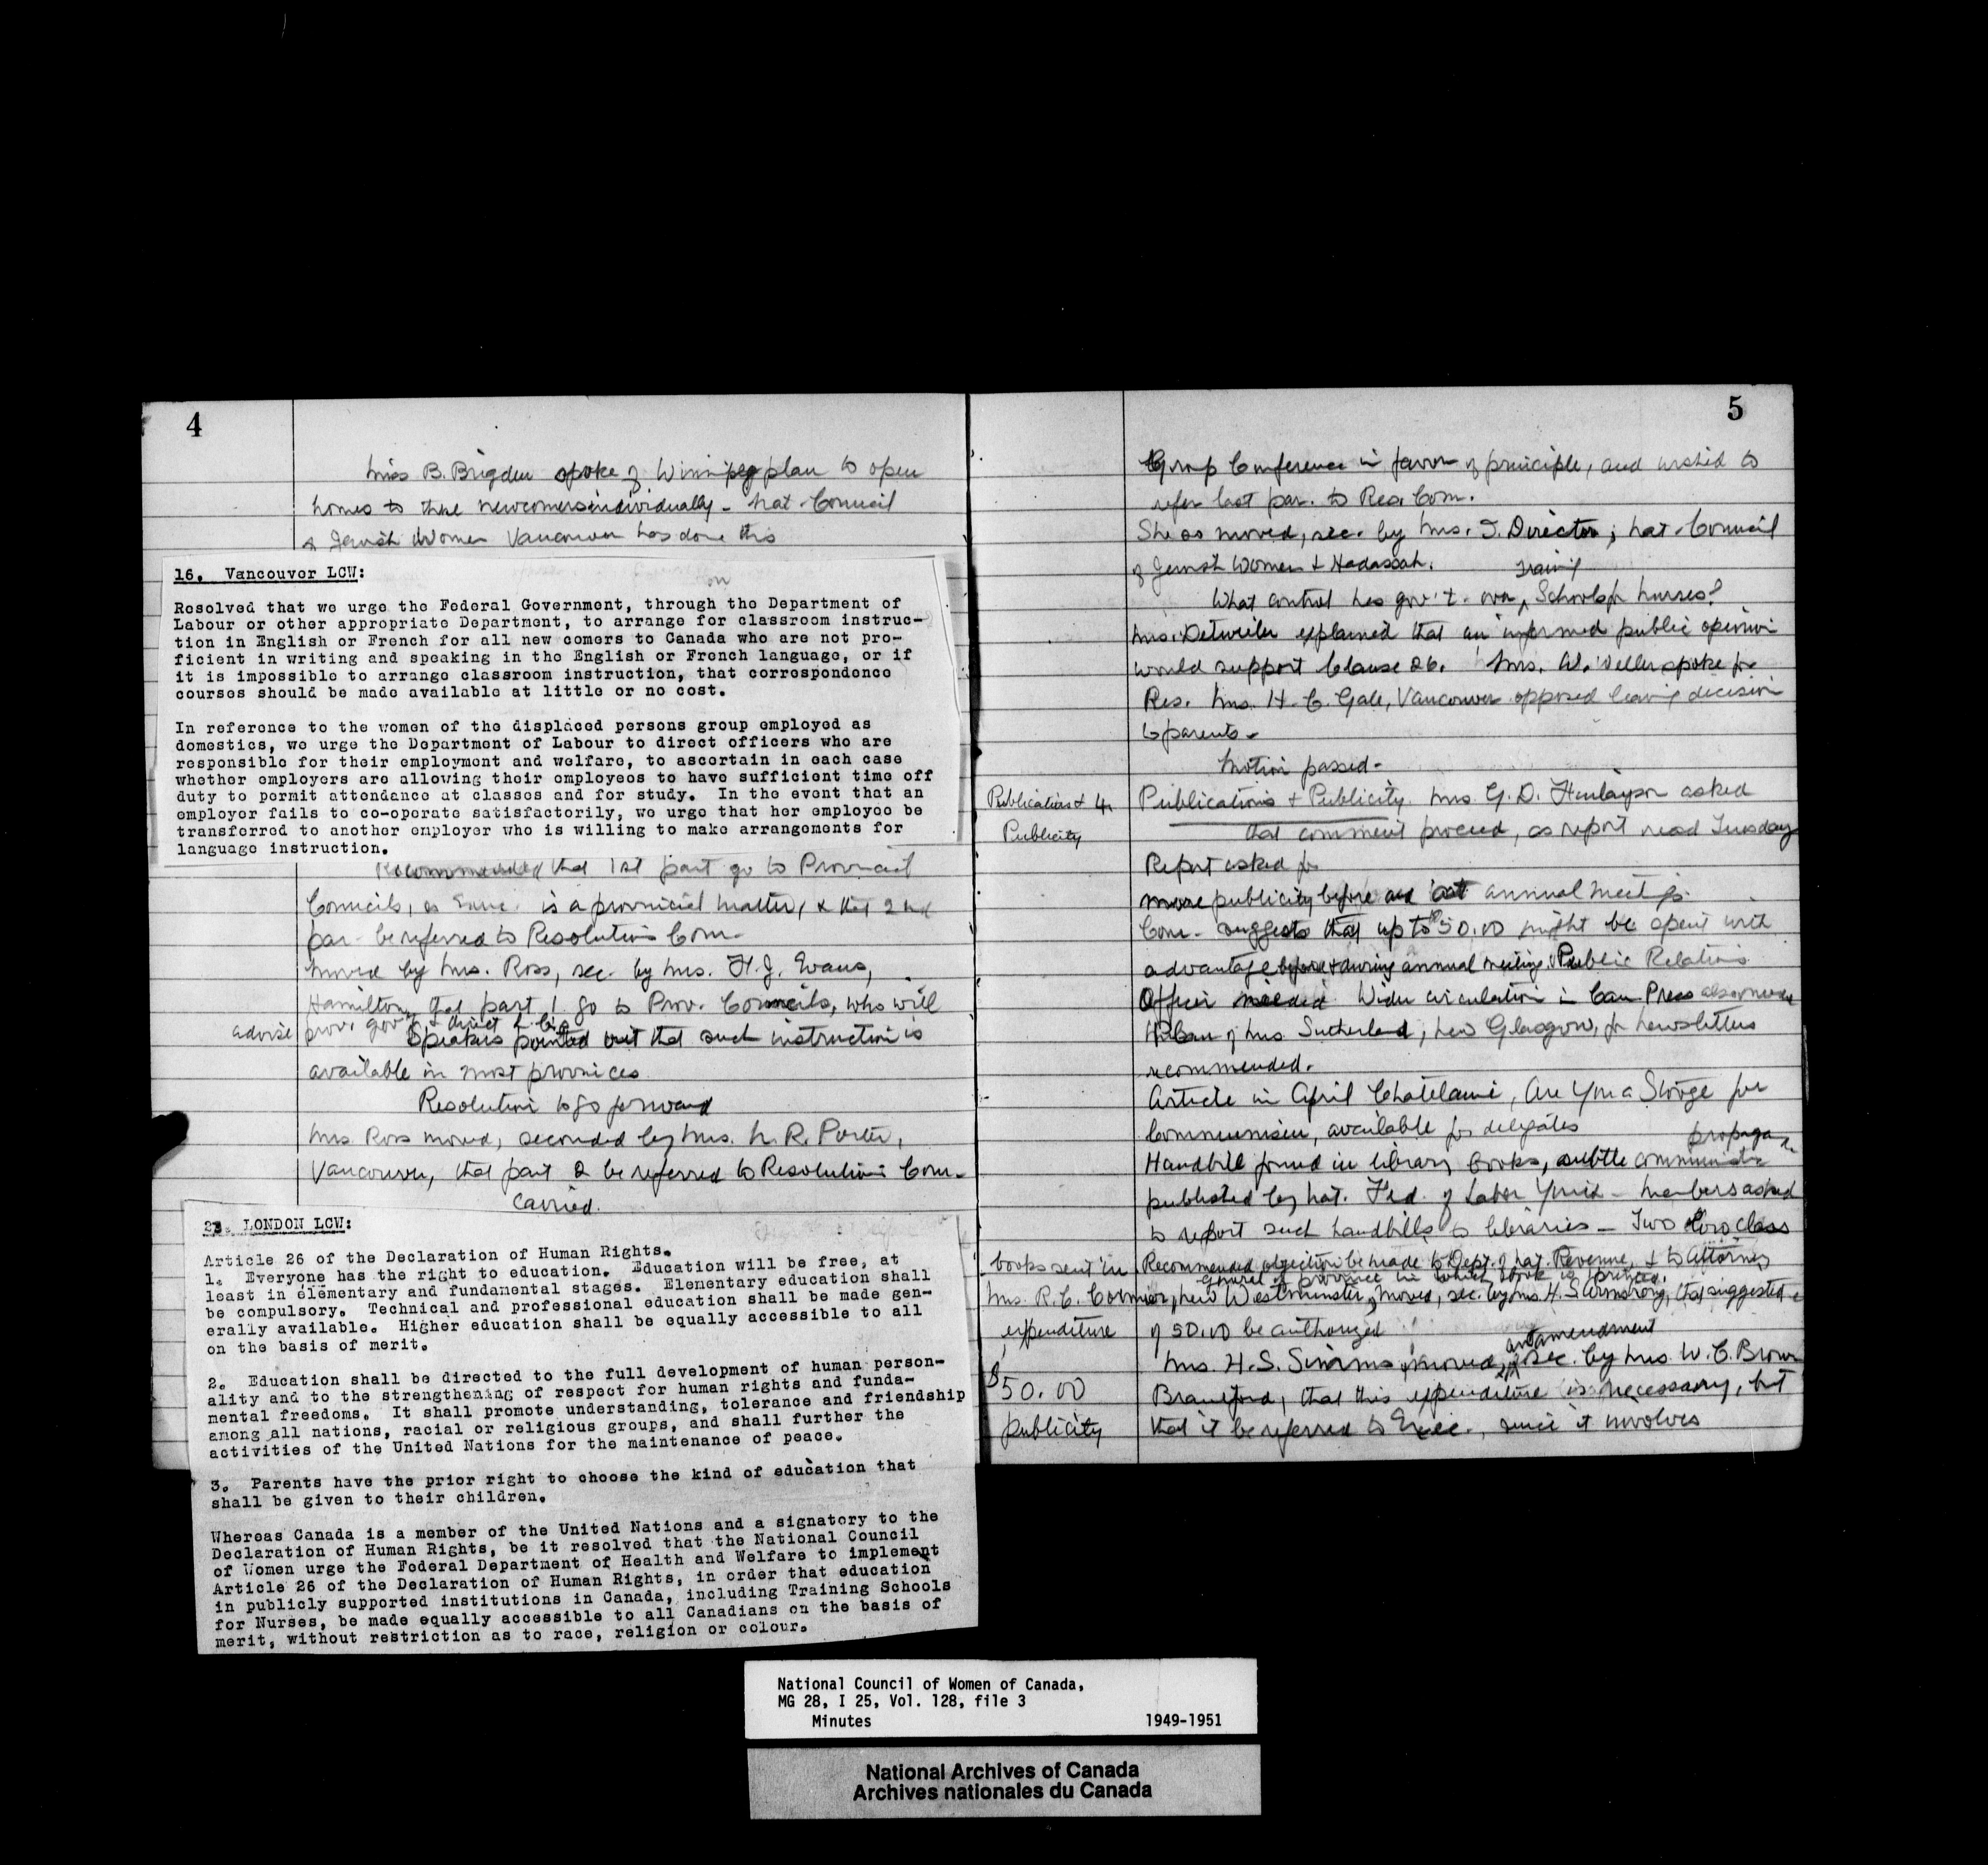 4
Miss B. Brigden spoke of Winnipeg plan to open
homes to these newcomers individually - Nat. Council
of Jewish Women Vancouver has done this
on
16. Vancouver LCW:
Resolved that we urge the Federal Government, through the Department of
Labour or other appropriate Department, to arrange for classroom instruc-
tion in English or French for all new comers to Canada who are not pro-
ficient in writing and speaking in the English or French language, or if
it is impossible to arrange classroom instruction, that correspondence
courses should be made available at little or no cost.
In reference to the women of the displaced persons group employed as
domestics, we urge the Department of Labour to direct officers who are
responsible for their employment and welfare, to ascertain in each case
whether employers are allowing their employees to have sufficient time off
duty to permit attendance at classes and for study. In the event that an
employer fails to co-operate satisfactorily, we urge that her employee be
transferred to another employer who is willing to make arrangements for
language instruction.
Recommended that 1st part go to Provincial
Councils, as Educ. is a provincial matter, & that 2nd
par. be referred to Resolutions Com.
Moved by Mrs. Ross, sec. by Mrs. H.J. Evans,
Hamilton, that part 1 go to Prov. Councils, who will
advise prov. gov't
Speakers pointed out that such instruction is
available in most provinces
Resolution to go forward
Mrs Ross moved, seconded by Mrs. N. R. Porter,
Vancouver, that part 2 be referred to Resolutions Com-
Carried.
23. LONDON LCW:
Article 26 of the Declaration of Human Rights.
1. Everyone has the right to education. Education will be free, at
least in elementary and fundamental stages. Elementary education shall
be compulsory. Technical and professional education shall be made gen-
erally available. Higher education shall be equally accessible to all
on the basis of merit.
2. Education shall be directed to the full development of human person-
ality and to the strengthening of respect for human rights and funda-
mental freedoms. It shall promote understanding, tolerance and friendship
among all nations, racial or religious groups, and shall further the
activities of the United Nations for the maintenance of peace.
3. Parents have the prior right to choose the kind of education that
shall be given to their children.
Whereas Canada is a member of the United Nations and a signatory to the
Declaration of Human Rights, be it resolved that the National Council
of Women urge the Federal Department of Health and Welfare to implement
Article 26 of the Declaration of Human Rights, in order that education
in publicly supported institutions in Canada, including Training Schools
for Nurses, be made equally accessible to all Canadians on the basis of
merit, without restriction as to race, religion or colour.
5
Group Conference in favor of principle, and wished to
refer last par. to Res. Com.
She so moved, sec. by Mrs. J. Director; Nat. Council
of Jewish Women & Hadassah.
Training
What control has gov't. over Schools for Nurses?
Mrs. Detwiler explained that an informed public opinion
would support Clause 26. Mrs. W. Weller spoke for
Res. Mrs. H. C. Gale, Vancouver opposed leaving decision
to parents.
Motion passed.
Publications &
Publicity
Publications & Publicity. Mrs. G. D. Finlayson asked
that comment proceed, as report read Tuesday
Report asked for
more publicity before and at annual meetings.
Com. suggests that up to $50.00 might be spent with
advantage before & during annual meeting. Public Relations
Officer needed. Wider circulation in Can. Press also needed
Plan of Mrs. Sutherland, New Glasgow, for newsletters
recommended.
Article in April Chatelaine, Are You a Stooge for
Communism, available for delegates
propaganda
Handbill found in library books, subtle communistic
published by Nat. Fed. of Labor Youth - members asked
to report such handbills to libraries - Two low class
books sent in Recommended objection be made to Dept. of Nat. Revenue, & to Attorney
General of province in which book is printed.
Mrs. R. C. Cormier, New Westminster, moved, sec. by Mrs. H. S. Armstrong, that suggested
expenditure of 50.00 be authorized
an amendment
Mrs. H. S. Simms, moved, sec. by Mrs. W. C. Brown
$50.00
publicity
Brantford, that this expenditure is necessary, but
that it be referred to Exec., since it involves
National Council of Women of Canada,
MG 28, I 25, Vol. 128, file 3
Minutes 1949-1951
National Archives of Canada
Archives nationales du Canada